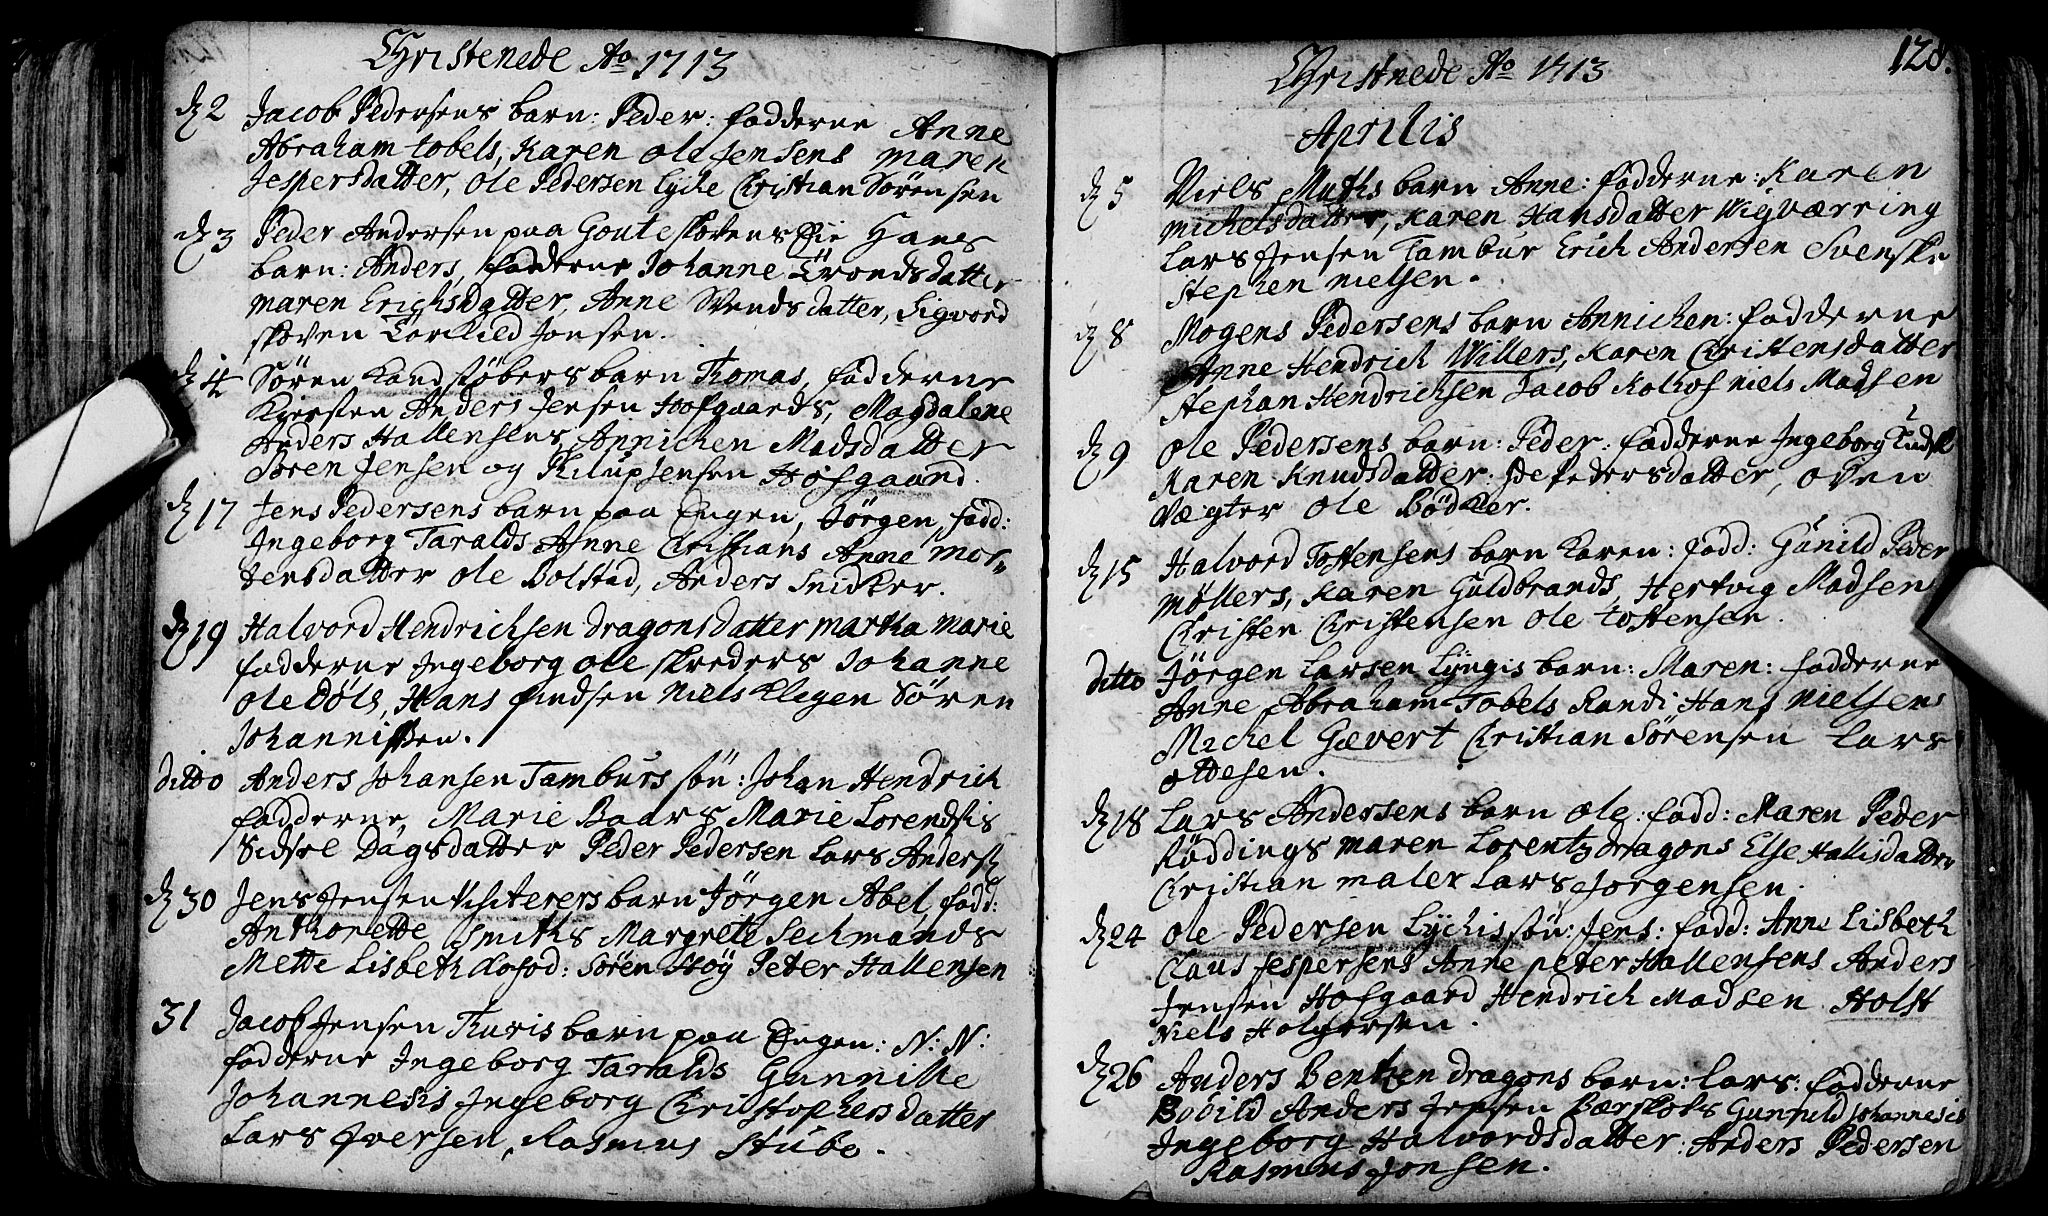 Christenede Ao 1713
d 2 Jacob Pedersens barn: Peder: fadderne Anne
Abraham tobels, Karen Ole Jensens maren
Jespersdatter, Ole Pedersen Lÿcke Christian Sörensen
d 3 Peder Andersen paa
barn: Anders, fadderne Johanne Trondsdatter
maren Erichsdatter, Anne Svendsdatter, Sigvord
skoven Torkild Jonsen.
d 14 Sören barn Thomas, fadderne
Kiersten Anders Jensen Hofgaards, Magdalene
Anders Hallensens, Annichen Madsdatter
Sören Jensen og Philupsensen Hofgaard.
d 17 Jens Pedersens barn paa Engen, Jörgen, fadd:
Ingeborg Taralds Anne Christians Anne Mor-
tensdatter Ole Bolstad, Anders Snicker.
d 19 Halvord Hendrichsen dragons datter martha marie
fadderne Ingeborg ole skreders Johanne
Ole Döls, Hans findsen Niels Klegen Sören
Johannissen.
ditto Anders Johansen Tamburs sön: Johan Hendrich
fadderne, Marie Baars Marie Lorendsis
Sidsel Dagsdatter Peder Pedersen Lars Anders
d 30 Jens Jensen Visiterers barn Jörgen Abel, fadd:
Anthonette Smiths Margrete Seckmands
Mette Lisbeth Rosod: Sören Höÿ Peter Hallensen
31 Jacob Jensen Thuris barn paa Engen: N: N:
fadderne Ingeborg Taralds Gunnille
Johannesis Ingeborg Christophersdatter
Lars Iversen, Rasmus Stube.
128.
Christnede Ao 1713
Aprilis
d 5 Niels Muths barn Anne: fadderne: Karen
Michelsdatter, Karen Hansdatter Wigværring
Lars Jensen Tambur Erich Andersen Svenske
Stephen nielsen.
d 8 Mogens Pedersens barn Annichen: fadderne
Anne Hendrich Willers, Karen Christensdatter
Stephan Hendrichsen Jacob Kolhof niels Madsen
d 9 Ole Pedersens barn: Peder: fadderne Ingeborg
Karen Knudsdatter: Ide Pedersdatter, oven
Vægter Ole Bödker.
d 15 Halvord Tostensens barn Karen: fadd: Gunild Peder
Möllers, Karen Guldbrands, Hertvig Madsen
Christen Christensen Ole tostensen.
ditto Jörgen Larsen Lyngis barn: Maren: fadderne
Anne Abraham Tobels Randi Hans Nielsens
Michel Gævert Christian Sörensen Lars
ottesen.
d 18 Lars Andersens barn Ole: fadd: Maren Peder
Röddings maren Lorentz dragons Else Hallisdatter
Christian maler Lars Jorgensen.
d 24 Ole Pedersen Lÿckis sön: Jens: fadd: Anne Lisbeth
Claus Jespersens Anne peter Hallensens Anders
Jensen Hofgaard Hendrich Madsen Holst
Niels Holgersen.
d 26 Anders Bentzen dragons barn: Lars: fadderne
Boöild Anders Jepsen Bærskots Gunild Johannesis
Ingeborg Halvordsdatter: Anders Pedersen
Rasmus Jonsen.